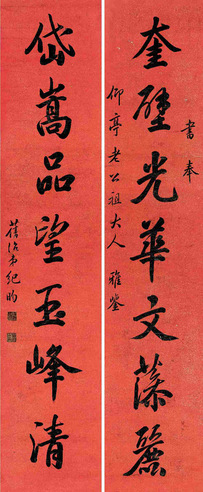 奎壁光華文藻麗
書奉
仰亭老公祖大人雅鑒
岱嵩品望玉峰清
舊治弟紀昀